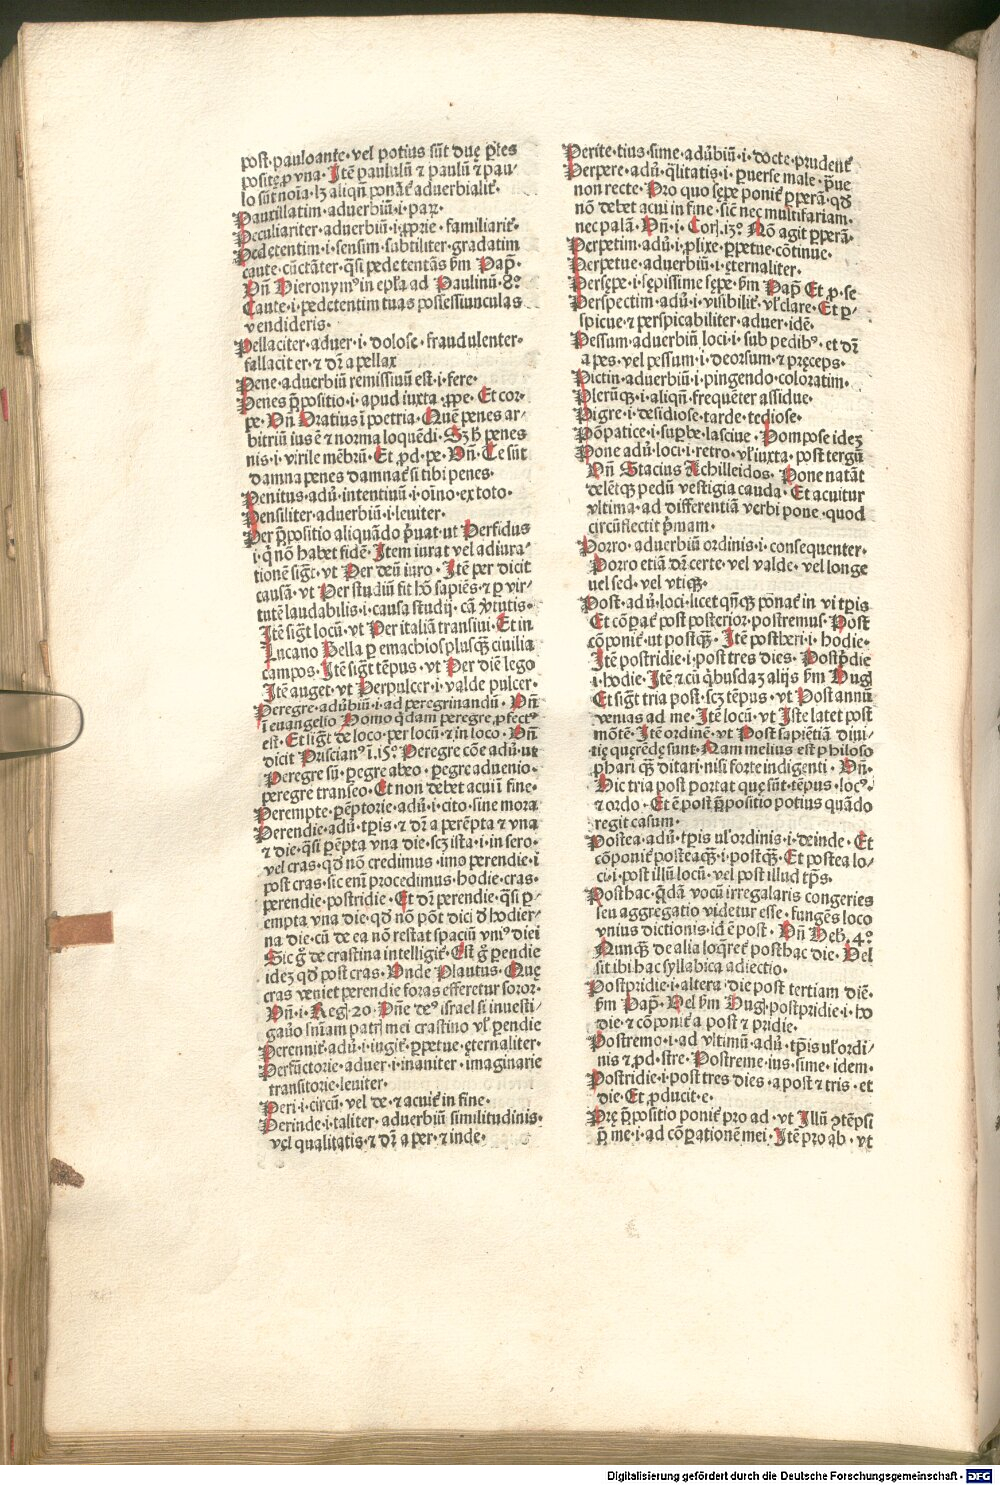 post·pauloante·vel potius sūt duę ꝑtes
positę ꝓ vna·Itē paululū ⁊ paulū ⁊ pau/
lo sūt noīa·lꝫ aliqñ ponāt᷑ aduerbialit᷑·
Pauxillatim·aduerbiū·i·paꝝ·
Peculiariter·aduerbiū·i·ꝓprie·familiarit᷑·
Pedetentim·i·sensim·subtiliter·gradatim
caute·cūctāter·q̄si pede tentās ẜm Pap̄·
Vñ Hieronymꝰ in epl̄a ad Paulinū·8ꝰ
Caute·i·pedetentim tuas possessiunculas
vendideris·
Pellaciter·aduer·i·dolose·fraudulenter·
fallaciter·⁊ dr̄ a pellax
Pene·aduerbiū remissiuū est·i·fere·
Penes p̄positio·i·apud iuxta·ꝓpe·Et cor·
pe·Vñ Oratius ī poetria·Quē penes ar/
bitriū ius ē ⁊ norma loquēdi·Sꝫ h̄ penes
nis·i·virile mēbrū·Et ꝓd·pe·Vñ·Te sūt
damna penes damnāt᷑ si tibi penes·
Penitus·adū·intentiuū·i·oīno·ex toto·
Pensiliter·aduerbiū·i·leuiter·
Per p̄positio aliquādo p̄uat·ut Perfidus
i·q̄ nō habet fidē·Item iurat vel adiura/
tionē sigt̄·vt Per deū iuro·Itē per dicit
causā·vt Per studiū fit hō sapiēs·⁊ ꝑ vir/
tutē laudabilis·i·causa studij·cā ꝟtutis·
Itē sigt̄ locū·vt Per italiā transiui·Et in
Lucano Bella ꝑ emathios plusq̄ ciuilia
campos·Itē sigt̄ tēpus·vt Per diē lego
Itē auget·vt Perpulcer·i·valde pulcer·
Peregre·adūbiū·i·ad peregrinandū·Vñ
ī euangelio Homo q̄dam peregre ꝓfectꝰ
est·Et sigt̄ de loco·per locū·⁊ in loco·Vñ
dicit Priscianꝰ l.15ꝰ Peregre cōe adū·ut
Peregre sū·ꝑegre abeo·ꝑegre aduenio·
peregre transeo·Et non debet acui ī fine·
Perempte·ꝑēptorie·adū·i·cito·sine mora
Perendie·adū·tp̄is·⁊ dr̄ a perēpta ⁊ vna
⁊ die·q̄si ꝑēpta vna die·scꝫ ista·i·in sero·
vel cras·qd̄ nō credimus·imo perendie·i
post cras·sic enī procedimus·hodie·cras·
perendie·postridie·Et dr̄ perendie·q̄si ꝑ/
empta vna die·qd̄ nō pōt dici d̄ hodier/
na die·cū de ea nō restat spaciū vniꝰ diei
Sic g̊ de crastina intelligit᷑·Est g̊ ꝑendie
idez qd̄ post cras·Vnde Plautus·Quę
cras veniet perendie foras efferetur soror·
Vñ·i·Reg·20·Dñe deꝰ israel si inuesti/
gauo snīam patr̄ mei crastino vl̓ ꝑendie
Perennit᷑·adū·i·iugit᷑·ꝑpetue·ęternaliter·
Perfūctorie·aduer·i·inaniter·imaginarie
transitorie·leuiter·
Peri·i·circū·vel de·⁊ acuit᷑ in fine·
Perinde·i·taliter·aduerbiū similitudinis·
vel qualitatis·⁊ dr̄ a per·⁊ inde·
Perite·tius·sime·adūbiū·i·docte·prudent᷑
Perpere·adū·q̄litatis·i·ꝑuerse male·p̄ue
non recte·Pro quo sępe ponit᷑ ꝑperā·qd̄
nō debet acui in fine·sic̄ nec multifariam·
nec palā·Vñ·i·Cor·13ꝰ Nō agit ꝑperā·
Perpetim·adū·i·ꝓlixe·ꝑpetue·cōtinue·
Perpetue·aduerbiū·i·ęternaliter·
Persępe·i·sępissime sępe·ẜm Pap̄ Et ꝓ·se
Perspectim·adū·i·visibilit᷑·vl̓ clare·Et ꝑ/
spicue·⁊ perspicabiliter·aduer·idē·
Pessum·aduerbiū loci·i·sub pedibꝰ·et dr̄
a pes·vel pessum·i·deorsum·⁊ pręceps·
Pictin·aduerbiū·i·pingendo·coloratim·
Plerūqꝫ·i·aliqñ·frequēter assidue·
Pigre·i·desidiose·tarde·tediose·
Pōpatice·i·suꝑbe·lasciue·Pompose idez
Pone adū·loci·i·retro·vl̓ iuxta·post tergū
Vñ Stacius Achilleidos·Pone natāt
delētqꝫ pedū vestigia cauda·Et acuitur
vltima·ad differentiā verbi pone·quod
circūflectit p̄mam·
Porro·aduerbiū ordinis·i·consequenter·
Porro etiā dr̄ certe·vel valde·vel longe
uel sed·vel vtiqꝫ·
Post·adū·loci·licet qñcqꝫ pōnat᷑ in vi tp̄is
Et cōꝑat᷑ post posterior·postremus·Post
cōponit᷑·ut postqꝫ·Itē postheri·i·hodie·
Itē postridie·i·post tres dies·Postp̄die
i·hodie·Itē ⁊ cū q̄busdaz alijs ẜm Hug
Et sigt̄ tria post·scꝫ tēpus·vt Post annū
venias ad me·Itē locū·vt Iste latet post
mōtē·Itē ordinē·vt Post sapiētiā diui/
tię quęrēdę sunt·Nam melius est philoso
phari qꝫ ditari·nisi forte indigenti·Vñ·
Hic tria post portat quę sūt·tēpus·locꝰ·
⁊ ordo·Et ē post p̄positio potius quādo
regit casum·
Postea·adū·tp̄is ul̓ ordinis·i·deinde·Et
cōponit᷑ posteaqꝫ·i·postqꝫ·Et postea lo/
ci·i·post illū locū·vel post illud tp̄s·
Posthac·q̄dā vocū irregalaris congeries
seu aggregatio videtur esse·fungēs loco
vnius dictionis·id ē post·Vñ Heb·4ꝰ
Nunqꝫ de alia loq̄ret᷑ posthac die·Vel
sit ibi hac syllabica adiectio·
Postpridie·i·altera die post tertiam diē·
ẜm Pap̄·Vel ẜm Hug·postpridie·i·ho
die·⁊ cōponit᷑ a post ⁊ pridie·
Postremo·i·ad vltimū·adū·tp̄is ul̓ ordi/
nis ⁊ ꝓd·stre·Postreme·ius·sime·idem·
Postridie·i·post tres dies·a post ⁊ tris·et
die·Et ꝓducit·e·
Prę p̄positio ponit᷑ pro ad·vt Illū ꝯtēpsi
p̄ me·i·ad cōꝑationē mei·Itē pro ab·vt
Digitalisierung gefördert durch die Deutsche Forschungsgemeinschaft - DFG